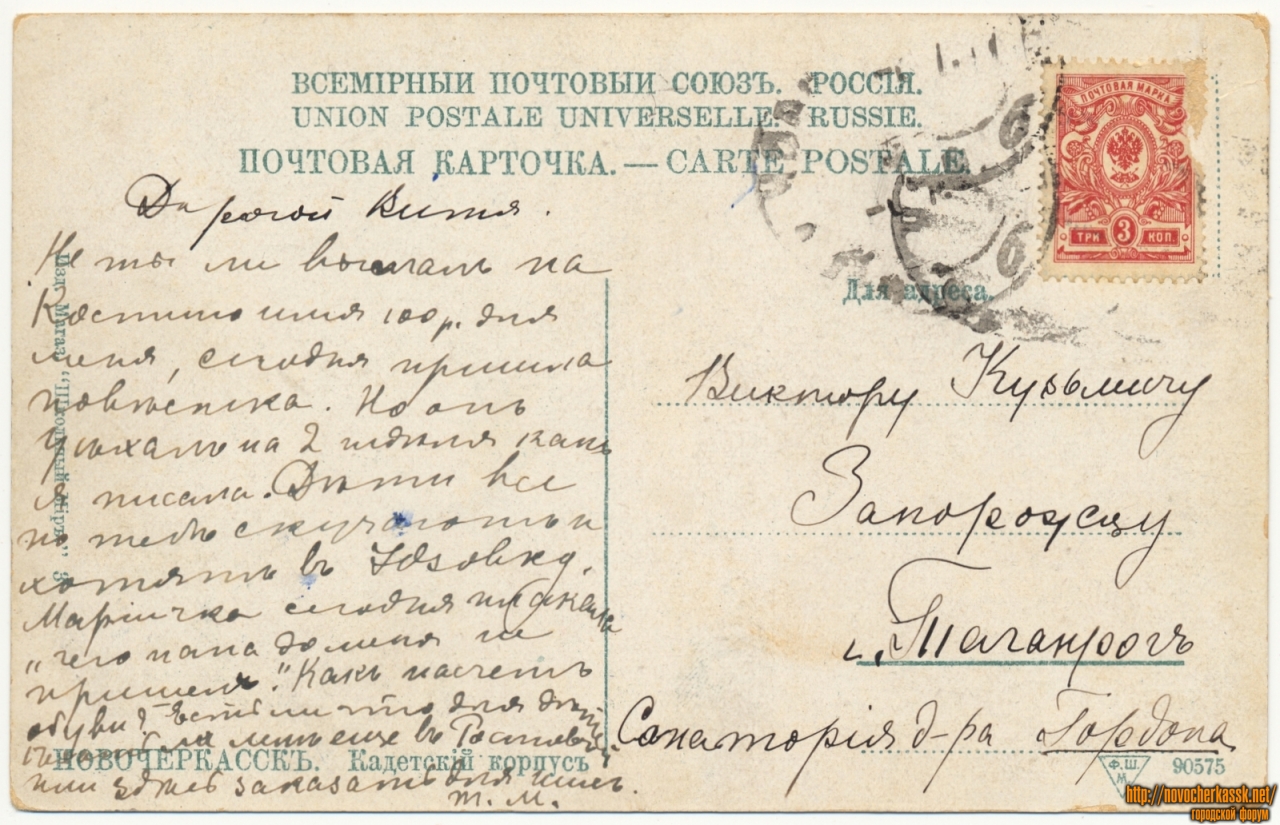 ВСЕМІРНЫЙ ПОЧТОВЫЙ СОЮЗЪ. РОССІЯ.
UNION POSTALE UNIVERSELLE. RUSSIE.
ПОЧТОВАЯ КАРТОЧКА. — CARTE POSTALE.
ПОЧТОВАЯ МАРКА
ТРИ 3 КОП.
6
6
Для адреса.
Дорогой Витя.
Не ты ли выслалъ на
Костино имя 100 р. для
меня, сегодня пришла
повѣстка. Но онъ
уѣхалъ на 2 недѣли какъ
я писала. Дѣти все
по тебѣ скучаютъ и
хотятъ въ Юзовку.
Маричка сегодня плакала
"чего папа до меня не
пришелъ." Какъ насчетъ
обуви? Есть ли что для дѣтей
мнѣ еще въ Ростовѣ
или здѣсь заказать для нихъ.
Т. М.
Виктору Кузьмичу
Запорожцу
г. Таганрогъ
Санаторія д-ра Гордона
Изд. Магаз. "
НОВОЧЕРКАССКЪ. Кадетскій корпусъ
Ф. Ш.
М.
90575
http://novocherkassk.net/
городской форум